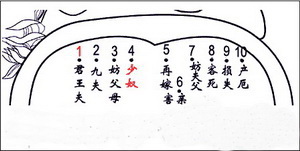 1 君王夫
2 九夫
3 妨父母
4 少奴
5 再嫁害
6 亲
7 妨夫父
8 客死
9 损夫
10 产厄